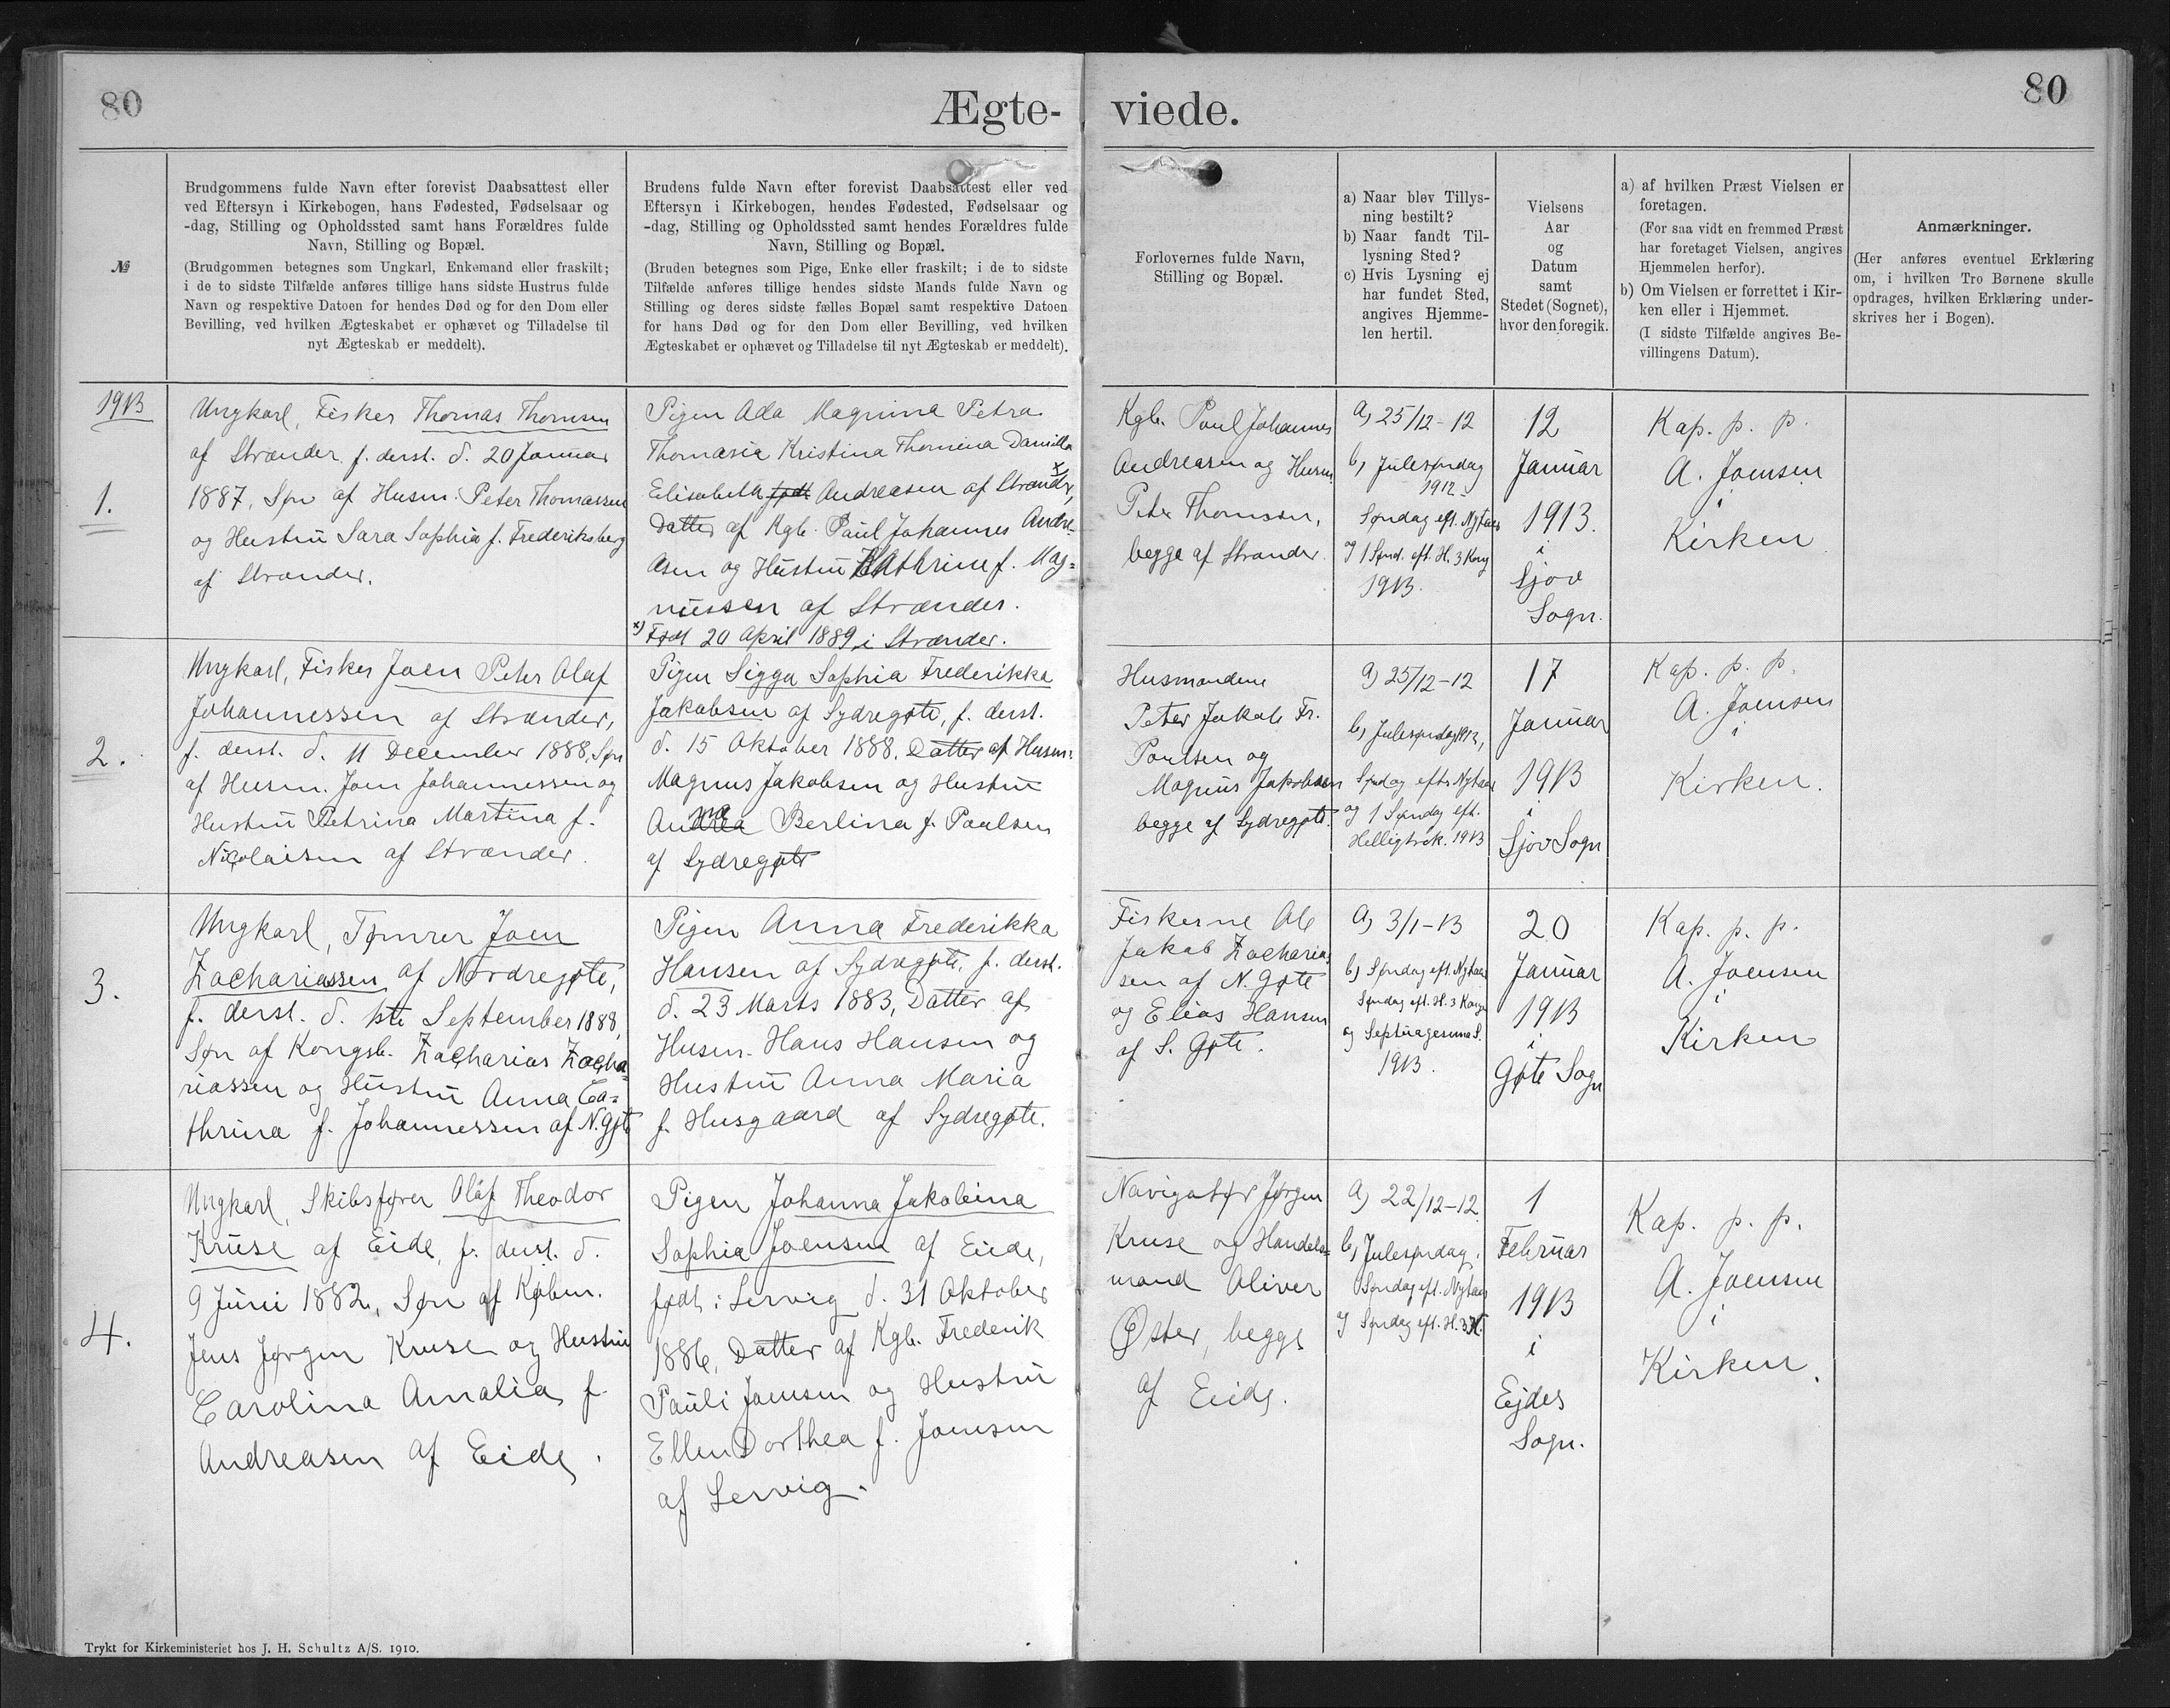 80
Ægte-
viede.
80
№
Brudgommens fulde Navn efter forevist Daabsattest eller
ved Eftersyn i Kirkebogen, hans Fødested, Fødselsaar og
-dag, Stilling og Opholdssted samt hans Forældres fulde
Navn, Stilling og Bopæl.
(Brudgommen betegnes som Ungkarl, Enkemand eller fraskilt;
i de to sidste Tilfælde anføres tillige hans sidste Hustrus fulde
Navn og respektive Datoen for hendes Død og for den Dom eller
Bevilling, ved hvilken Ægteskabet er ophævet og Tilladelse til
nyt Ægteskab er meddelt).
Brudens fulde Navn efter forevist Daabsattest eller ved
Eftersyn i Kirkebogen, hendes Fødested, Fødselsaar og
-dag, Stilling og Opholdssted samt hendes Forældres fulde
Navn, Stilling og Bopæl.
(Bruden betegnes som Pige, Enke eller fraskilt; i de to sidste
Tilfælde anføres tillige hendes sidste Mands fulde Navn og
Stilling og deres sidste fælles Bopæl samt respektive Datoen
for hans Død og for den Dom eller Bevilling, ved hvilken
Ægteskabet er ophævet og Tilladelse til nyt Ægteskab er meddelt).
Forlovernes fulde Navn,
Stilling og Bopæl.
a) Naar blev Tillys-
ning bestilt?
b) Naar fandt Til-
lysning Sted?
c) Hvis Lysning ej
har fundet Sted,
angives Hjemme-
len hertil.
Vielsens
Aar
og
Datum
samt
Stedet (Sognet),
hvor den foregik.
a) af hvilken Præst Vielsen er
foretagen.
(For saa vidt en fremmed Præst
har foretaget Vielsen, angives
Hjemmelen herfor).
b) Om Vielsen er forrettet i Kir-
ken eller i Hjemmet.
(I sidste Tilfælde angives Be-
villingens Datum).
Anmærkninger.
(Her anføres eventuel Erklæring
om, i hvilken Tro Børnene skulle
opdrages, hvilken Erklæring under-
skrives her i Bogen).
1913
1.
Ungkarl, Fisker Thomas Thomsen
af Strænder f. derst. d. 20 Januar
1887, Søn af Husm. Peter Thomassen
og Hustru Sara Sophia f. Frederiksberg
af Strænder.
Pigen Ada Magnina Petra
Thomasia Kristina Thomina Danilla
Elisabeth født Andreasen af Strænder, x
Datter af Kgb. Paul Johannes Andre-
asen og Hustru Kathrine f. Mag=
nussen af Strænder.
x) Født 20 April 1889 i Strænder.
Kgb. Poul Johannes
Andreasen og Husm.
Peter Thomsen,
begge af Strænder
a) 25/12-12
b) Julesøndag
1912
Søndag eft. Nytaar
og 1 Sønd. eft. H. 3 Kong
1913.
12
Januar
1913.
i
Sjov
Sogn.
Kap. p. p.
A. Joensen
i
Kirken
2.
Ungkarl, Fisker Joen Peter Olaf
Johannessen af Strænder,
f. derst. d. 11 December 1888, Søn
af Husm. Joen Johannessen og
Hustru Petrina Martina f.
Nicolaisen af Strænder.
Pigen Sigga Sophia Frederikka
Jakobsen af Sydregøte, f. derst.
d. 15 Oktober 1888. Datter af Husm.
Magnus Jakobsen og Hustru
Anna Berlina f. Poulsen
af Sydregøte
Husmændene
Peter Jakob Fr.
Poulsen og
Magnus Jakobsen
begge af Sydregøte.
a) 25/12-12
b) Julesøndag 1912,
Søndag efter Nytaar
og 1 Søndag eft.
Helligtrek. 1913
17
Januar
1913
i
Sjov Sogn
Kap. p. p.
A. Joensen
i
Kirken.
3.
Ungkarl, Tømrer Joen
Zachariassen af Nordregøte,
f. derst. d. 1ste September 1888,
Søn af Kongsb. Zacharias Zacha=
riassen og Hustru Anna Ca=
thrina f. Johannessen af N. Gøte
Pigen Anna Frederikka
Hansen af Sydregøte, f. derst.
d. 23 Marts 1883, Datter af
Husm. Hans Hansen og
Hustru Anna Maria
f. Husgaard af Sydregøte.
Fiskerne Ole
Jakob Zacharias
sen af N. Gøte
og Elias Hansen
af S. Gøte.
a) 3/1-13
b) Søndag eft. Nytaar
Søndag eft. H. 3 Konge
og Septuagesima S.
1913.
20
Januar
1913
i
Gøte Sogn
Kap. p. p.
A. Joensen
i
Kirken
4.
Ungkarl, Skibsfører Olaf Theodor
Kruse af Eide, f. derst. d.
9 Juni 1882, Søn af Købm.
Jens Jørgen Kruse og Hustru
Carolina Amalia f.
Andreasen af Eide.
Pigen Johanna Jakobina
Sophia Joensen af Eide,
født i Lervig d. 31 Oktober
1886, Datter af Kgb. Frederik
Pauli Joensen og Hustru
Ellen Dorthea f. Joensen
af Lervig.
Navigatør Jørgen
Kruse og Handels=
mand Oliver
Øster, begge
af Eide.
a) 22/12-12
b) Julesøndag,
Søndag eft. Nytaar
og Søndag eft. H. 3 K.
1
Februar
1913
i
Ejdes
Sogn.
Kap. p. p.
A. Joensen
i
Kirken.
Trykt for Kirkeministeriet hos J. H. Schultz A/S. 1910.